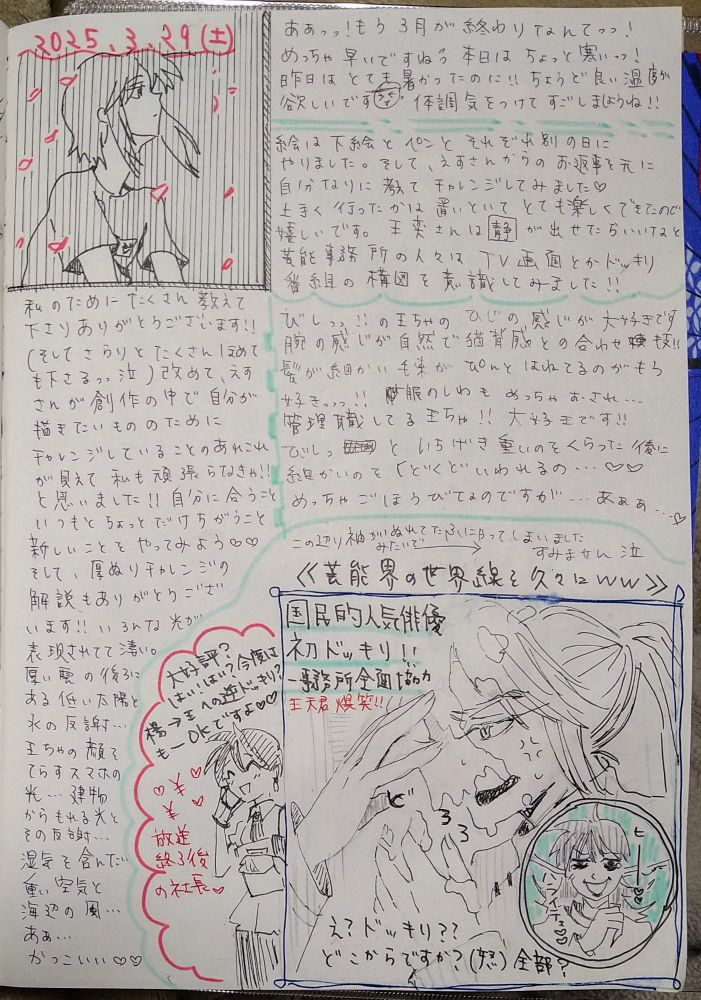 2025.3.29(土)
あぁっっ!もう3月が終わりなんてっっ!
めっちゃ早いですねぅ 本日はちょっと寒いっっ!
昨日はとても暑かったのに!! ちょうど良い温度が
欲しいです 体調気をつけてすごしましょうね!!
絵は下絵とペンとそれぞれ別の日に
やりました。そして、えすさんからのお返事を元に
自分なりに教えてチャレンジしてみました♡
上手く行ったかは置いといてとても楽しくできたので
嬉しいです。王奕さんは静が出せてたらいいなと
芸能事務所の人々はTV画面とかドッキリ
番組の構図を意識してみました!!
私のためにたくさん教えて
下さりありがとうございます!!
(そしてさらりとたくさんほめて
も下さるっっ泣)改めて、えす
さんが創作の中で自分が
描きたいもののために
チャレンジしていることのあれこれ
が見えて私も頑張らなきゃ!!
と思いました!!自分に合うこと
いつもとちょっとだけちがうこと
新しいことをやってみよう♡♡
そして、厚ぬりチャレンジの
解説もありがとうござい
います!!いろんな光が
表現されてて凄い。
厚い雲の後ろに
ある低い太陽と
水の反射…
王ちゃの顔を
てらすスマホの
光…建物
からもれる光と
その反射…
湿気を含んだ
重い空気と
海辺の風…
あぁ…
かっこいい♡♡
びしっっ!!の王ちゃのひじの感じが大好きです
腕の感じが自然で猫背感との合わせ技!!
髪が細かい毛束がぴんとはねてるのがもう
好きっっ!! 服のしわもめっちゃおされ…
管理職してる王ちゃ!! 大好きです!!
びしっ といちげき重いのをくらった後に
細かいのをくどくどいわれるの…♡♡
めっちゃごほうびなのですが…あぁぁ…♡
この辺り袖がぬれてたみたいで
になってしまいました
すみません泣
≪芸能界の世界線を久々にww≫
国民的人気俳優
初ドッキリ!!
―事務所企画協力
王天君爆笑!!
大好評?
はい?はい?今度は
楊→王への逆ドッキリ?
も―OKですよ♡♡
♡¥♡
¥
放送
終了後
の社長♡
ど
ろろ
ヒーッ
ハライテェ♡♡
え?ドッキリ??
どこからですか?(怒)全部?